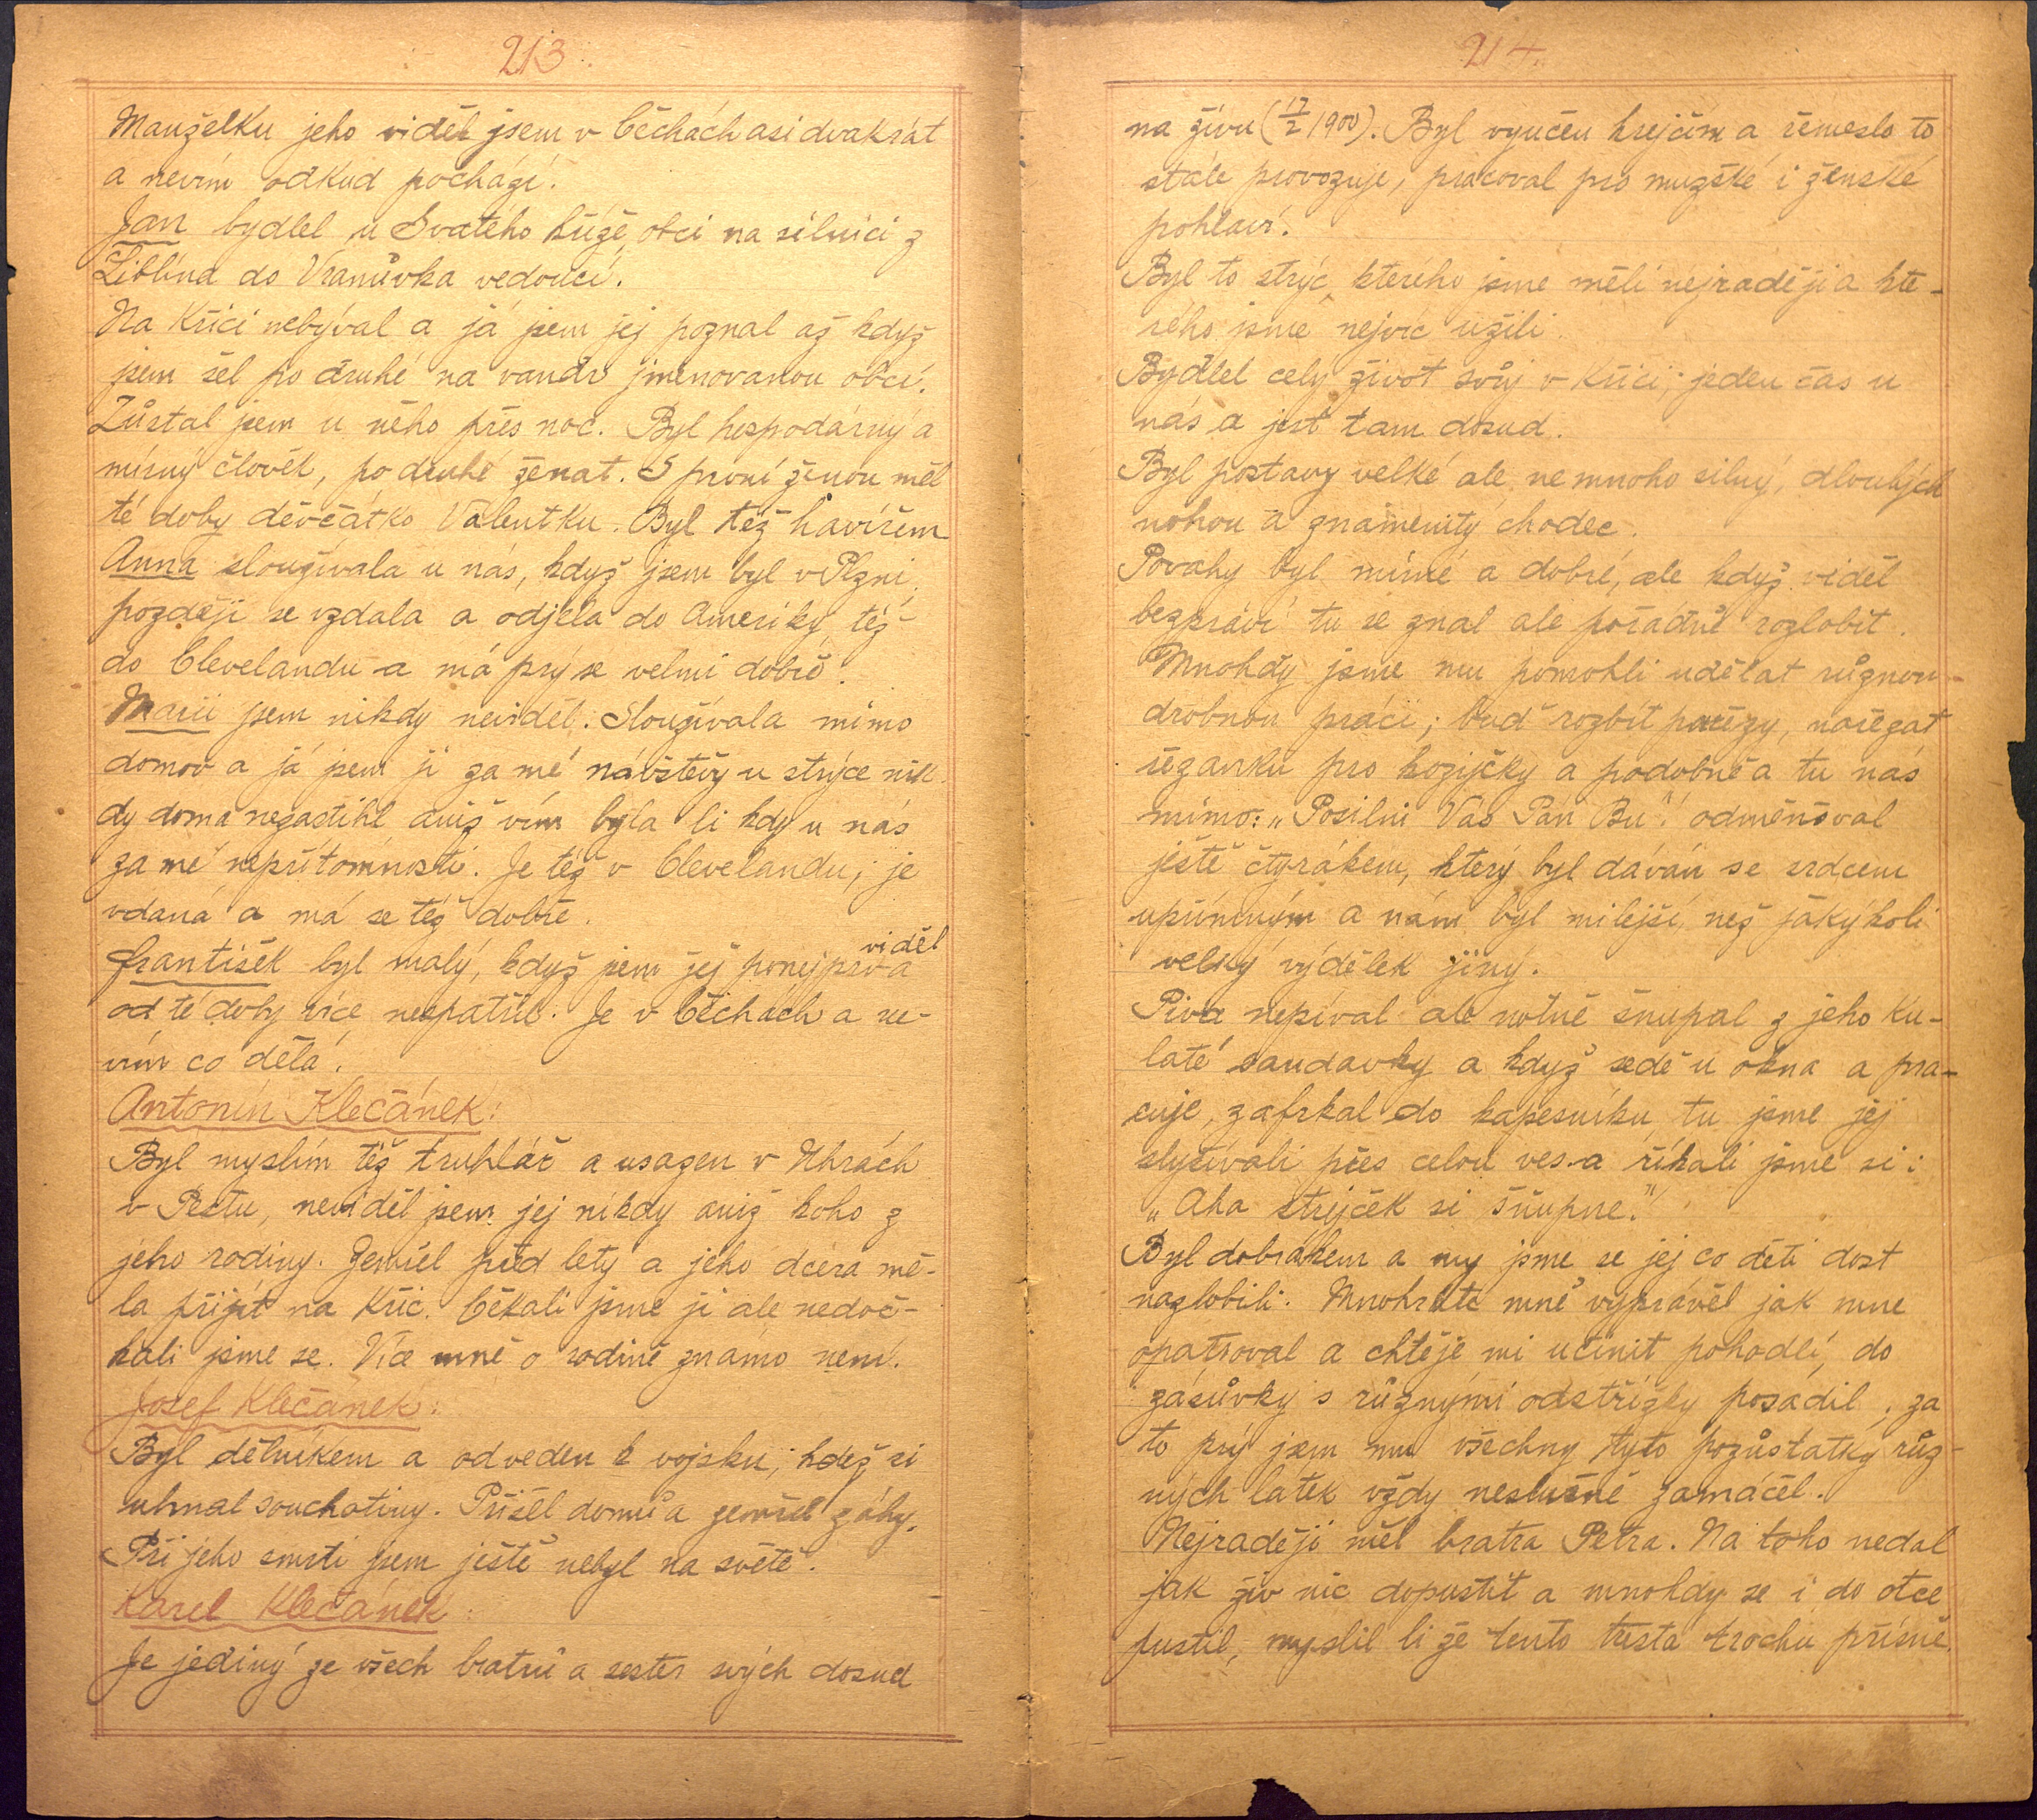 213.
Manželku jeho viděl jsem v Čechách asi dvakrát
a nevím odkud pochází.
Jan bydlel u Svatého kříže, obci na silnici z
Liblína do Vranůvka vedoucí.
Na Křiči nebýval a já jsem jej poznal až když
jsem šel po druhé na vandr jmenovanou obcí.
Zůstal jsem u něho přes noc. Byl hospodárný a
mírný člověk, po druhé ženat. S první ženou měl
té doby děvčátko Valentku. Byl též havířem
Anna sloužívala u nás, když jsem byl v Plzni,
později se vzdala a odjela do Ameriky, též
do Clevelandu a má prý se velmi dobře.
Marii jsem nikdy neviděl. Sloužívala mimo
domov a já jsem ji za mé návštěvy u strýce nik-
dy doma nezastihl aniž vím byla li kdy u nás
za mé nepřítomnosti. Je též v Clevelandu, je
vdaná a má se též dobře.
František byl malý, když jsem jej ponejprv viděl a
od té doby více nespatřil. Je v Čechách a ne-
vím co dělá.
Antonín Klečánek:
Byl myslím též truhlář a usazen v Uhrách
v Peštu, neviděl jsem jej nikdy aniž koho z
jeho rodiny. Zemřel před lety a jeho dcera mě-
la přijít na Kříč. Čekali jsme ji ale nedoč-
kali jsme se. Více mně o rodině známo není.
Josef Klečánek:
Byl dělníkem a odveden k vojsku, kdež si
uhnal souchotiny. Přišel domů a zemřel záhy.
Při jeho smrti jsem ještě nebyl na světě.
Karel Klečánek:
Je jediný ze všech bratrů a sester svých dosud
214.
na živu (17/2 1900). Byl vyučen krejčím a řemeslo to
stále provozuje, pracoval pro mužské i ženské
pohlaví.
Byl to strýc, kterého jsme měli nejraději a kte-
rého jsme nejvíc užili.
Bydlel celý život svůj v Kříči, jeden čas u
nás a jest tam dosud.
Byl postavy velké ale ne mnoho silný, dlouhých
nohou a znamenitý chodec.
Povahy byl mírné a dobré, ale když viděl
bezpráví tu se znal ale pořádně rozlobit.
Mnohdy jsme mu pomohli udělat různou
drobnou práci; buď rozbít pařezy, nařezat
řezanku pro kozičky a podobně a tu nás
mimo: „Posilni Vás Pán Bů“! odměňoval
ještě čtyrákem, který byl dáván se srdcem
upřímným a nám byl milejší, než jakýkoli
velký výdělek jiný.
Piva nepíval ale notně šnupal z jeho ku-
laté sandavky a když sedě u okna a pra-
cuje, zafrkal do kapesníku, tu jsme jej
slyšívali přes celou ves a říkali jsme si:
„Aha strejček si šňupne.“
Byl dobrákem a my jsme se jej co děti dost
nazlobili. Mnohráte mně vyprávěl jak mne
opatroval a chtěje mi učinit pohodlí, do
zásůvky s různými odstřižky posadil, za
to prý jsem mu všechny tyto pozůstatky růz-
ných látek vždy neslušně zamáčel.
Nejraději měl bratra Petra. Na toho nedal
jak živ nic dopustit a mnohdy se i do otce
pustil, myslil li že tento trestá trochu přísně.